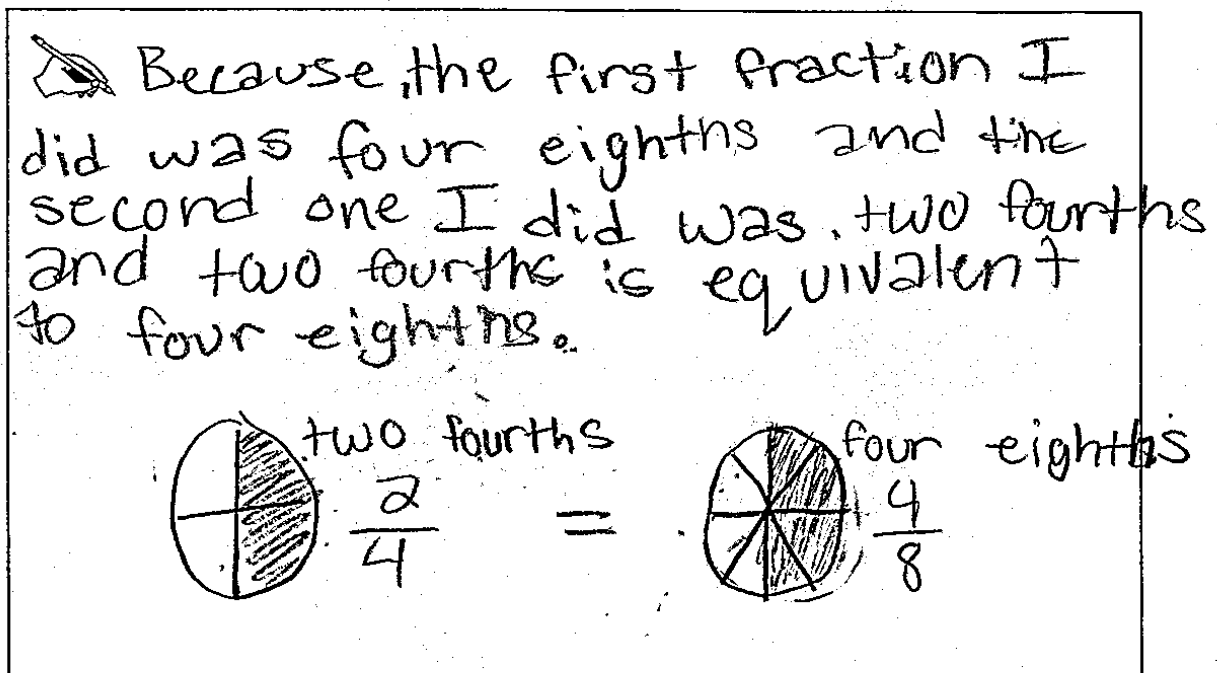 Because, the first fraction I
did was four eighths and the
second one I did was. two fourths
and two fourths is equivalent
to four eighths.
two fourths
2/4
=
four eighths
4/8